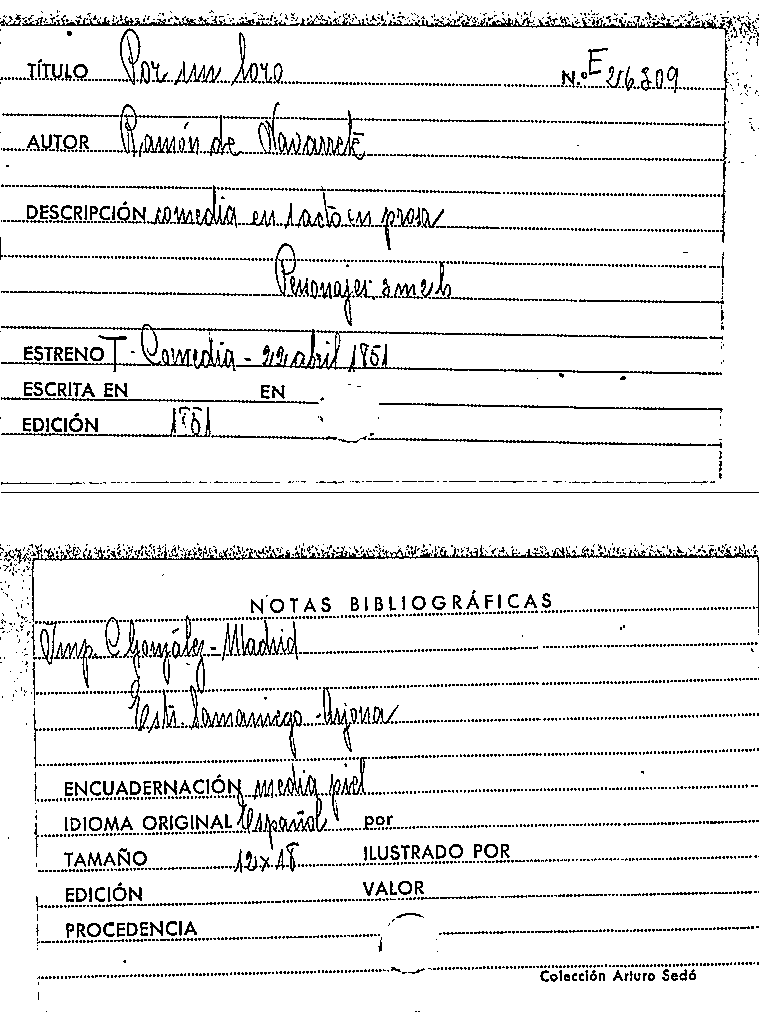 TÍTULO Por un loro N.º E 26809
AUTOR Ramón de Navarrete
DESCRIPCIÓN comedia en 1 acto en prosa
Personajes
ESTRENO T. Comedia - 22 abril 1851
ESCRITA EN EN
EDICIÓN 1851
NOTAS BIBLIOGRÁFICAS
Imp. C González - Madrid
Estr. Samaniego - Arjona
ENCUADERNACIÓN media piel
IDIOMA ORIGINAL Español por
TAMAÑO 12 x 18 ILUSTRADO POR
EDICIÓN VALOR
PROCEDENCIA
Colección Arturo Sedó